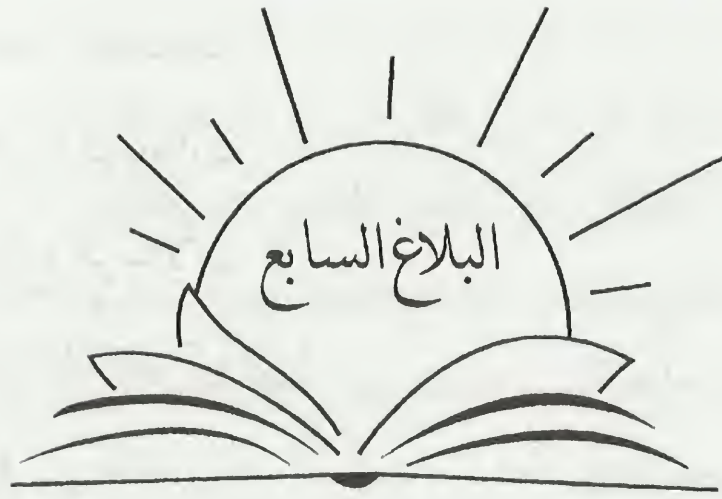 البلاغ السابع